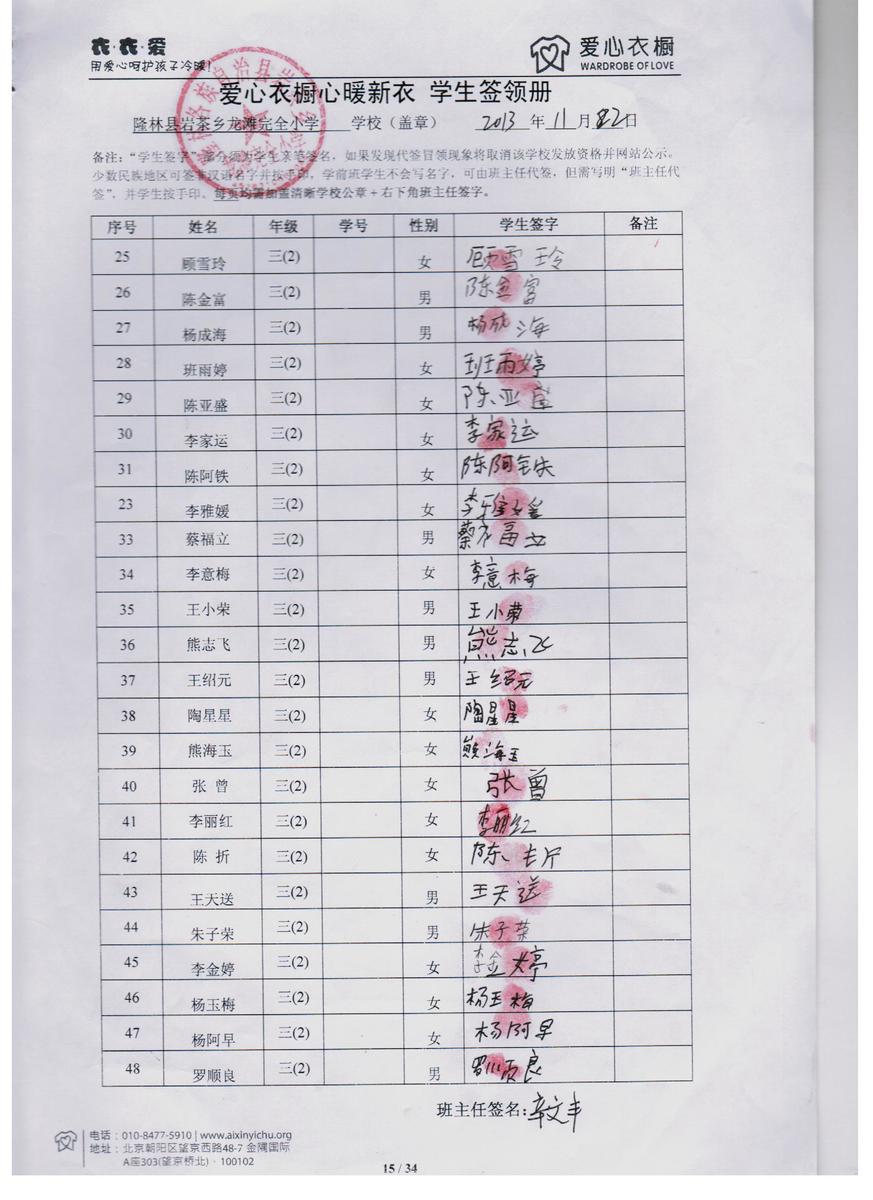 衣·衣·爱
用爱心呵护孩子冷暖!
爱心衣橱
WARDROBE OF LOVE
爱心衣橱心暖新衣 学生签领册
隆林县岩茶乡龙滩完全小学 学校（盖章） 2013 年 11 月 日
备注：“学生签字”部分须为学生亲笔签名，如果发现代签冒领现象将取消该学校发放资格并网站公示。
少数民族地区可签非汉语名字并按手印，学前班学生不会写名字，可由班主任代签，但需写明“班主任代
签”，并学生按手印。每页均需加盖清晰学校公章+右下角班主任签字。
序号 姓名 年级 学号 性别 学生签字 备注
25 顾雪玲 三(2) 女 顾雪玲
26 陈金富 三(2) 男 陈金富
27 杨成海 三(2) 男 杨成海
28 班雨婷 三(2) 女 班雨婷
29 陈亚盛 三(2) 女 陈亚盛
30 李家运 三(2) 女 李家运
31 陈阿铁 三(2) 女 陈阿铁
23 李雅媛 三(2) 女 李雅媛
33 蔡福立 三(2) 男 蔡福立
34 李意梅 三(2) 女 李意梅
35 王小荣 三(2) 男 王小荣
36 熊志飞 三(2) 男 熊志飞
37 王绍元 三(2) 男 王绍元
38 陶星星 三(2) 女 陶星星
39 熊海玉 三(2) 女 熊海玉
40 张 曾 三(2) 女 张曾
41 李丽红 三(2) 女 李丽红
42 陈 折 三(2) 女 陈折
43 王天送 三(2) 男 王天送
44 朱子荣 三(2) 男 朱子荣
45 李金婷 三(2) 女 李金婷
46 杨玉梅 三(2) 女 杨玉梅
47 杨阿早 三(2) 女 杨阿早
48 罗顺良 三(2) 男 罗顺良
班主任签名:
电话：010-8477-5910 | www.aixinyichu.org
地址：北京朝阳区望京西路48-7 金隅国际
A座303(望京桥北)·100102
15 / 34